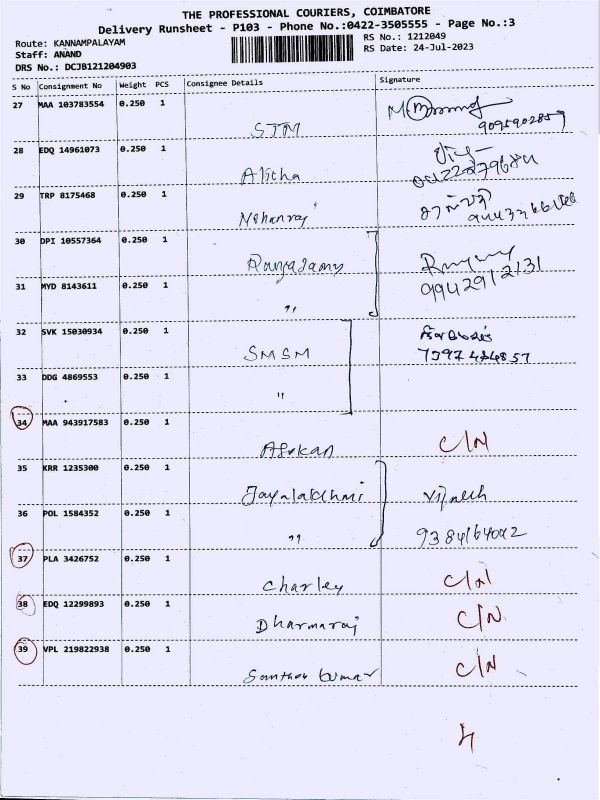 THE PROFESSIONAL COURIERS, COIMBATORE
Delivery Runsheet - P103 - Phone No.:0422-3505555 - Page No.:3
Route: KANNAMPALAYAM
Staff: ANAND
DRS No.: DCJB121204903
RS No.: 1212049
RS Date: 24-Jul-2023
S No Consignment No Weight PCS Consignee Details Signature
27 MAA 103783554 0.250 1
STM
9095902859
28 EDQ 14961073 0.250 1
Alitha
29 TRP 8175468 0.250 1
Mohanraj
30 DPI 10557364 0.250 1
Rangasamy
31 MYD 8143611 0.250 1
"
9942912131
32 SVK 15030934 0.250 1
SMSM
7597424857
33 DDG 4869553 0.250 1
"
34 MAA 943917583 0.250 1
Asokan C/N
35 KRR 1235300 0.250 1
Jayalakshmi Vignesh
36 POL 1584352 0.250 1
" 9384164042
37 PLA 3426752 0.250 1
Charley C/N
38 EDQ 12299893 0.250 1
Dharmaraj C/N
39 VPL 219822938 0.250 1
Santhosh kumar C/N
4